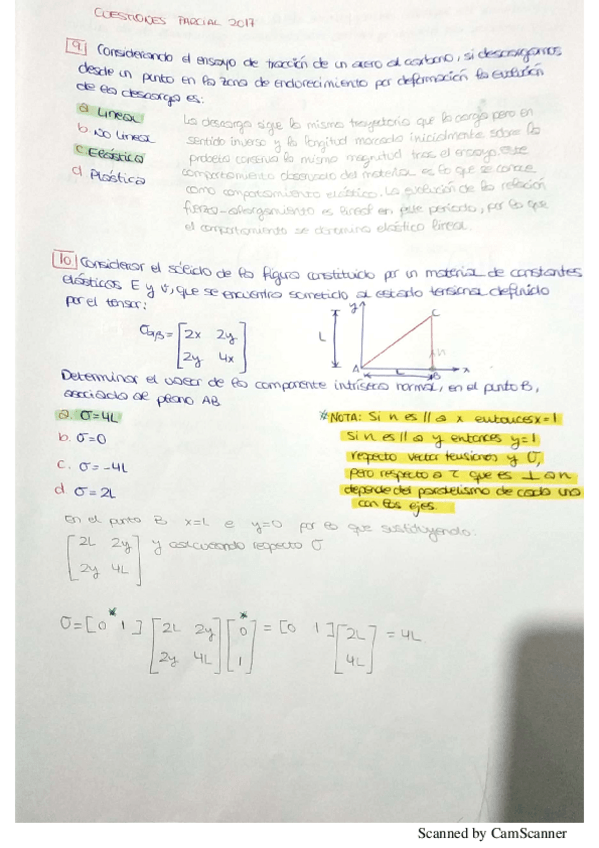 CUESTIONES PARCIAL 2017
9. Considerando el ensayo de tracción de un acero al carbono, si descargamos
desde un punto en la zona de endurecimiento por deformación la evolución
de la descarga es:
a Lineal
b. No lineal
c Elástica
d Plástica
La descarga sigue la misma trayectoria que la carga pero en
sentido inverso y la longitud marcada inicialmente sobre la
probeta conserva la misma magnitud tras el ensayo. Este
comportamiento observado del material es lo que se conoce
como comportamiento elástico. La evolución de la relación
fuerza-alargamiento es lineal en este periodo, por lo que
el comportamiento se denomina elástico lineal.
10 Considerar el sólido de la figura constituido por un material de constantes
elásticas E y ν, que se encuentra sometido al estado tensional definido
por el tensor:
σαβ = [2x 2y
2y 4x]
y C
L
n
A L B x
Determinar el valor de la componente intrínseca normal, en el punto B,
asociada al plano AB
a. σ=4L
b. σ=0
c. σ=-4L
d. σ=2L
* NOTA: Si n es // a x entonces x=1
Si n es // a y entonces y=1
respecto vector tensiones y σ,
pero respecto a τ que es ⊥ a n
depende del paralelismo de cada uno
con los ejes.
En el punto B x=L e y=0 por lo que sustituyendo:
[2L 2y
2y 4L] y calculando respecto σ
σ=[0 * 1] [2L 2y
2y 4L] [* 0
1] = [0 1] [2L
4L] = 4L
Scanned by CamScanner